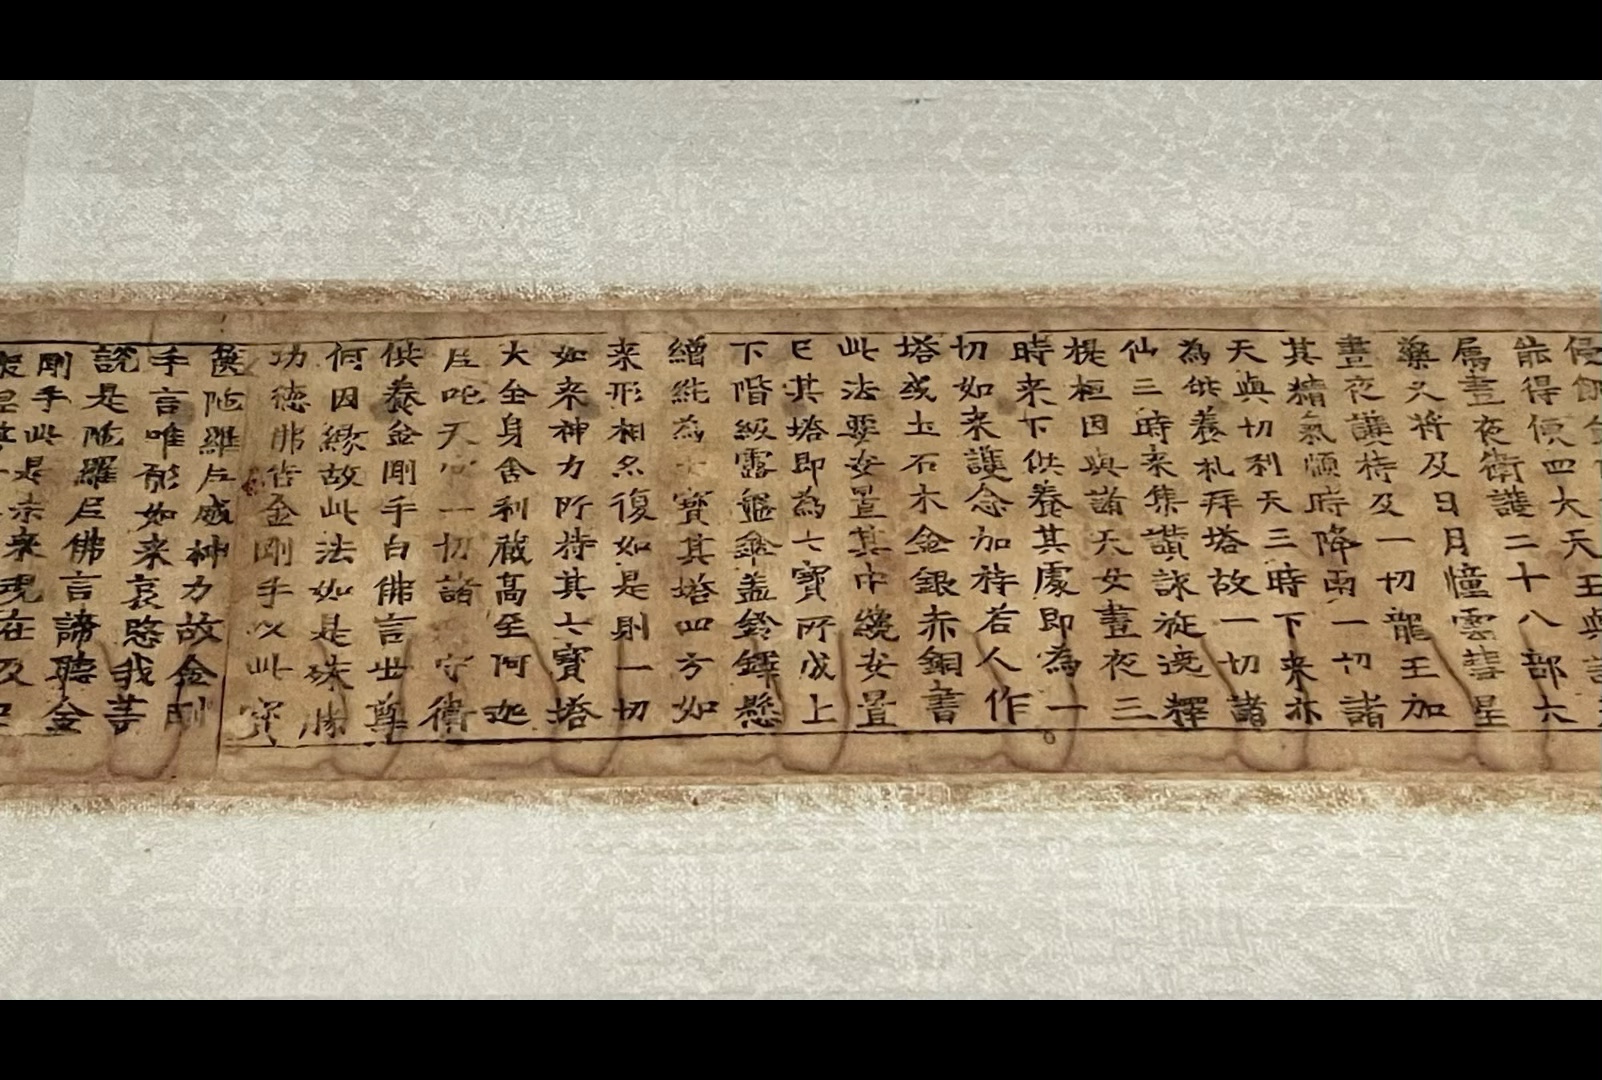 侵
能得便四大天王與諸
属晝夜衛護二十八部六
藥叉将及日月憧雲彗星
晝夜護持及一切龍王加
其精氣順時降雨一切諸
天與切利天三時下来亦
為供養礼拜塔故一切諸
仙三時来集讃詠旋遶釋
提桓因與諸天女晝夜三
時来下供養其處即為一
切如来護念加持若人作
塔或土石木金銀赤銅書
此法要安置其中纔安置
已其塔即為七寶所成上
下階級露盤傘盖鈴鐸懸
繒純為七寶其塔四方如
来形相亦復如是則一切
如来神力所持其七寶塔
大全身舍利藏髙至阿迦
尼吒天宫一切諸 守衛
供養金剛手白佛言世尊
何因緣故此法如是殊勝
功德佛告金剛手以此寶
篋陁羅尼威神力故金剛
手言唯願如来哀愍我等
說是陁羅尼佛言諦聽金
剛手此是未来現在及